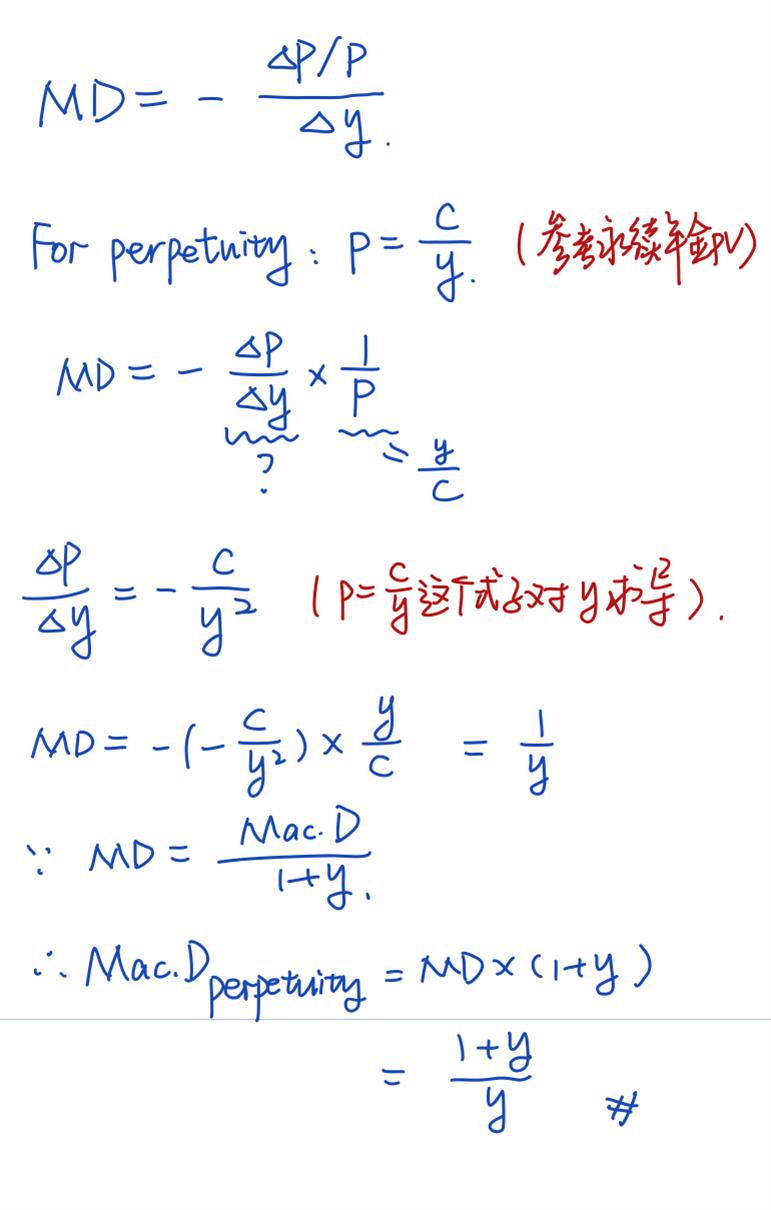 MD = - ΔP/P / Δy.
For perpetuity: P = C/y. (参考永续年金PV)
MD = - ΔP/Δy × 1/P
? = y/C
ΔP/Δy = - C/y² (P = C/y 这个式子对 y 求导).
MD = -(- C/y²) × y/C = 1/y
∵ MD = Mac.D / 1+y.
∴ Mac.D perpetuity = MD × (1+y)
= 1+y / y #